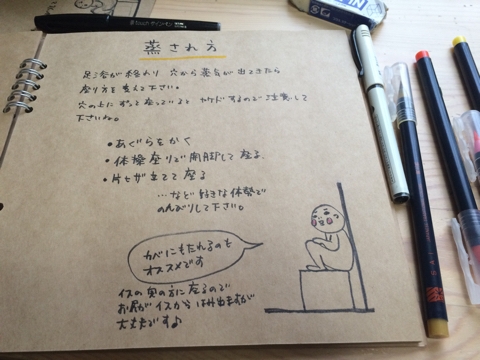 蒸され方
足浴が終わり 穴から蒸気が出てきたら
座り方を変えて下さい。
穴の上にずっと座っていると ヤケドするのでご注意して
下さいね。
• あぐらをかく
• 体操座りで開脚して座る
• 片ヒザ立てて座る
…など好きな体勢で
のんびりして下さい。
カベにもたれるのも
オススメです
イスの奥の方に座るので
お尻がイスから はみ出ますが
大丈夫です♪